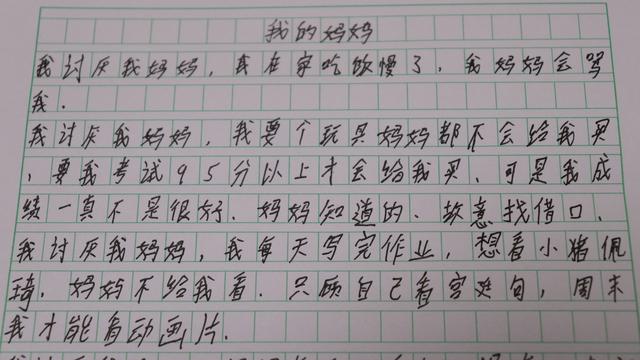 我的妈妈
我讨厌我妈妈，我在家吃饭慢了，我妈妈会骂
我．
我讨厌我妈妈，我要个玩具妈妈都不会给我买
、要我考试95分以上才会给我买．可是我成
绩一真不是很好．妈妈知道的、故意找借口．
我讨厌我妈妈，我每天写完作业，想看小猪佩
琦．妈妈不给我看．只顾自己看宫廷句，周末
我才能看动画片．